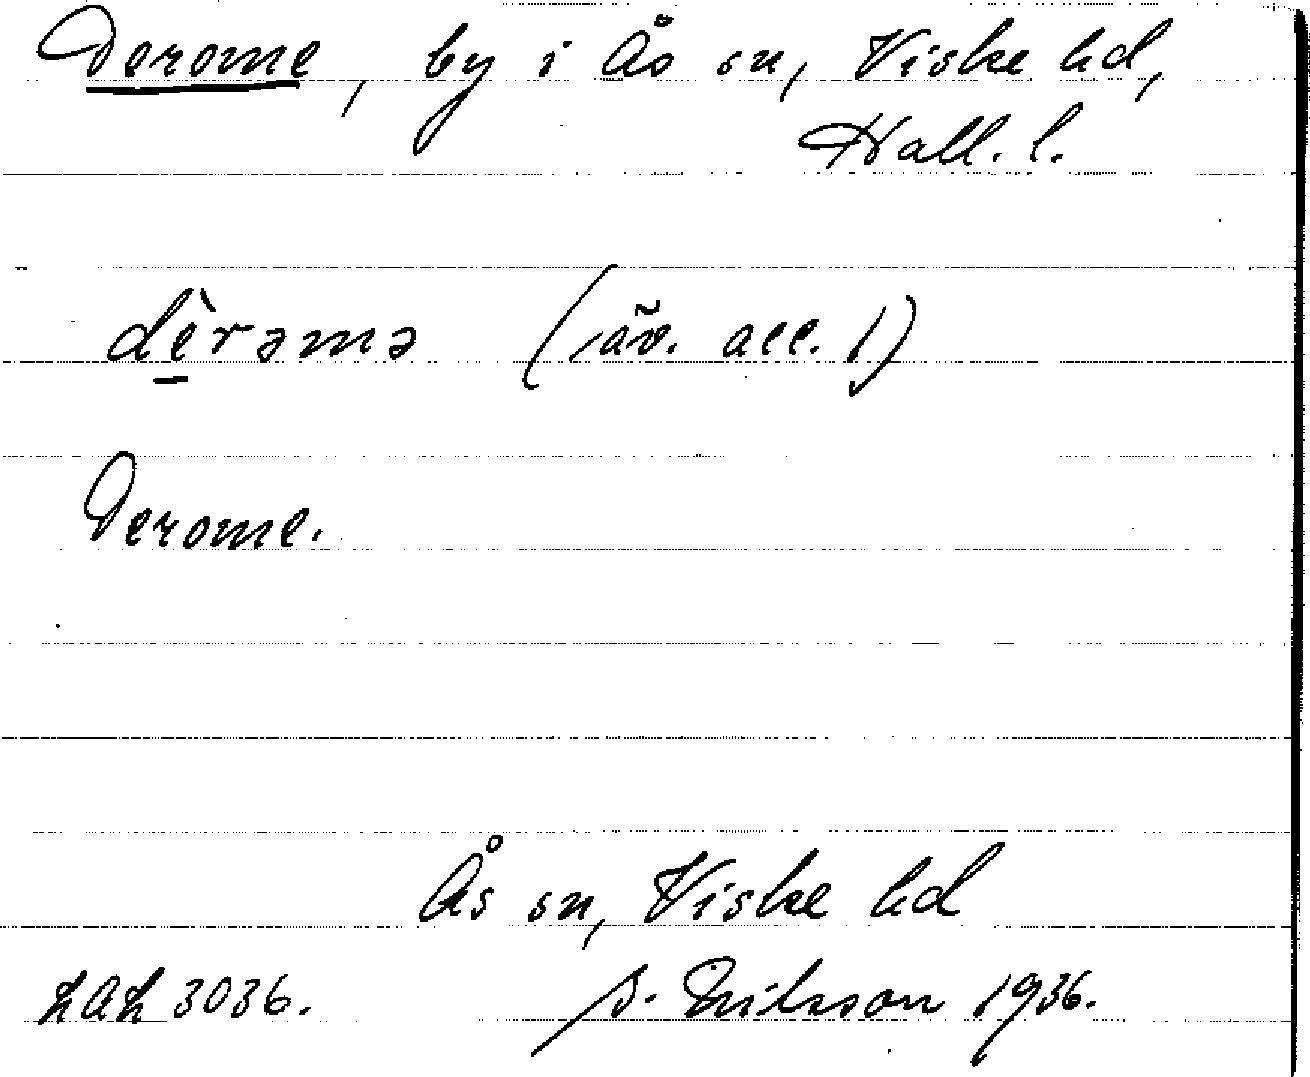 Derome, by i Ås sn, Viske hd,
Hall. l.
dèrəmə (äv. acc. 1)
Derome.
Ås sn, Viske hd
LAL 3036. S. Nilsson 1936.